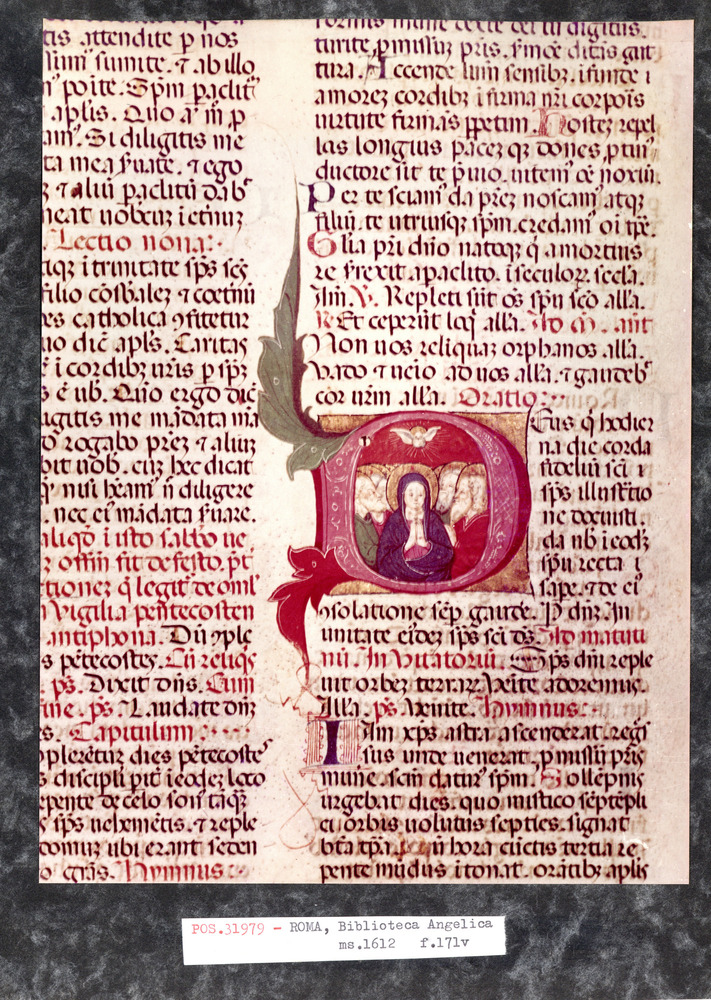 tis attendite p nos
sum sumite. ⁊ ab illo
aplis. Quo
Si diligitis me
ta mea suate. ⁊ ego
⁊ aliū paclitū dab
neat uobcuz i etnuz
Lectio nona:
aqz i trinitate sps scs
filio cōsbalez ⁊ coetnū
es catholica ꝯfitetur
uo dic apls. Caritas
i cordibz uris p spz
s ē ub. Quo ergo dic
agitis me mādata ma
o rogabo prez ⁊ aliuz
bit uob. cuz hec dicat
nisi heam n diligere
nec ei mādata suare.
aliqd i isto salbo ue
offm fit de festo. pt
tionez q legit de oml
n Vigilia pentecosten
antiphona. Dū ꝯple
s pētecostes. Cū reliqs
ps. Dixit dns. Cum
ine. ps. Laudate dnz
s. Capitulum
plerētur dies pētecoste
s discipli pit i eodez loco
epente de celo son taqz
sps uehemētis. ⁊ reple
domuz ubi erant seden
o gras. Hymnus
turite pmissuz pris. smoē ditās gut
tura. Accende lum sensibz. i funde i
amorez cordibz i firma nri corpois
uirtute firmās ppetim. Hostez repel
las longius pacez qz dones ptin
ductore sit te puio. uitem oē noxiū.
Per te sciam da prez noscam atqz
filiū. te utriusqz spm. credam oi tpe.
Glia pri dnio natoqz q a mortuis
re surexit ac paclito. i seculorz secla.
Am. V. Repleti sūt os spu sco alla.
R Et ceperūt loq alla. Ad M. ant
Non uos reliquaz orphanos alla.
vado ⁊ uenio ad uos alla. ⁊ gaudeb
cor urm alla. Oratio
Deus q hodier
na die corda
fideliū sci i
sps illustrtio
ne docuisti.
da nb i eodz
spu recta
sape. ⁊ de ei
ꝯsolatione sep gaude. P dnz. In
unitate eidez sps sci ds. Ad matuti
nū. Inuitatoriū. Sps dni reple
uit orbez terrarz. Venite adoremus.
Alla. ps. Venite. Hymnus
Iam xps astra ascenderat. regs
sus unde uenerat. pmissū pris
mune. scm daturz spm. Sollepnis
urgebat dies. quo mistico septepli
ci orbis uolutus septies. signat
bta tpa. hora cuctis tertia re
pente mūdus i tonat. oratibz aplis
POS.31979 - ROMA, Biblioteca Angelica
ms.1612 f.171v